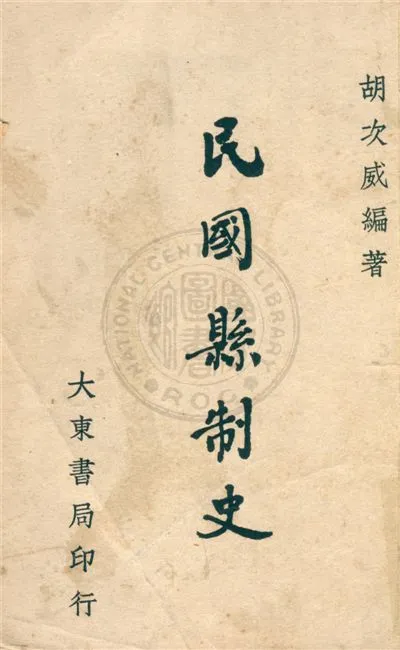 胡次威編著
民國縣制史
大東書局印行
NATIONAL CENTRAL LIBRARY
R.O.C.